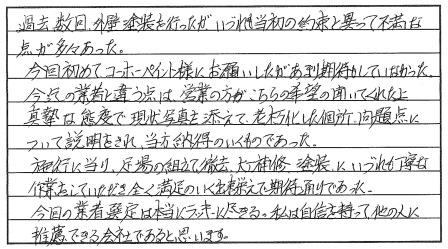 過去数回、外壁塗装を行ったがいづれも当初の約束と異って不満な
点が多々あった。
今回初めてコーホーペイント様にお願いしたがあまり期待していなかった。
今迄の業者と違う点は、営業の方がこちらの希望の聞いてくれた上
真摯な態度で現状写真を添えて、老朽化した個所、問題点に
ついて説明をされ、当方納得のいくものであった。
施行に当り、足場の組立て、撤去、大工補修、塗装、にいづれも丁寧な
作業をしていただき全く満足のいく出来栄えで期待通りであった。
今回の業者選定は本当にラッキーに尽きる。私は自信を持って他の人に
推薦できる会社であると思います。